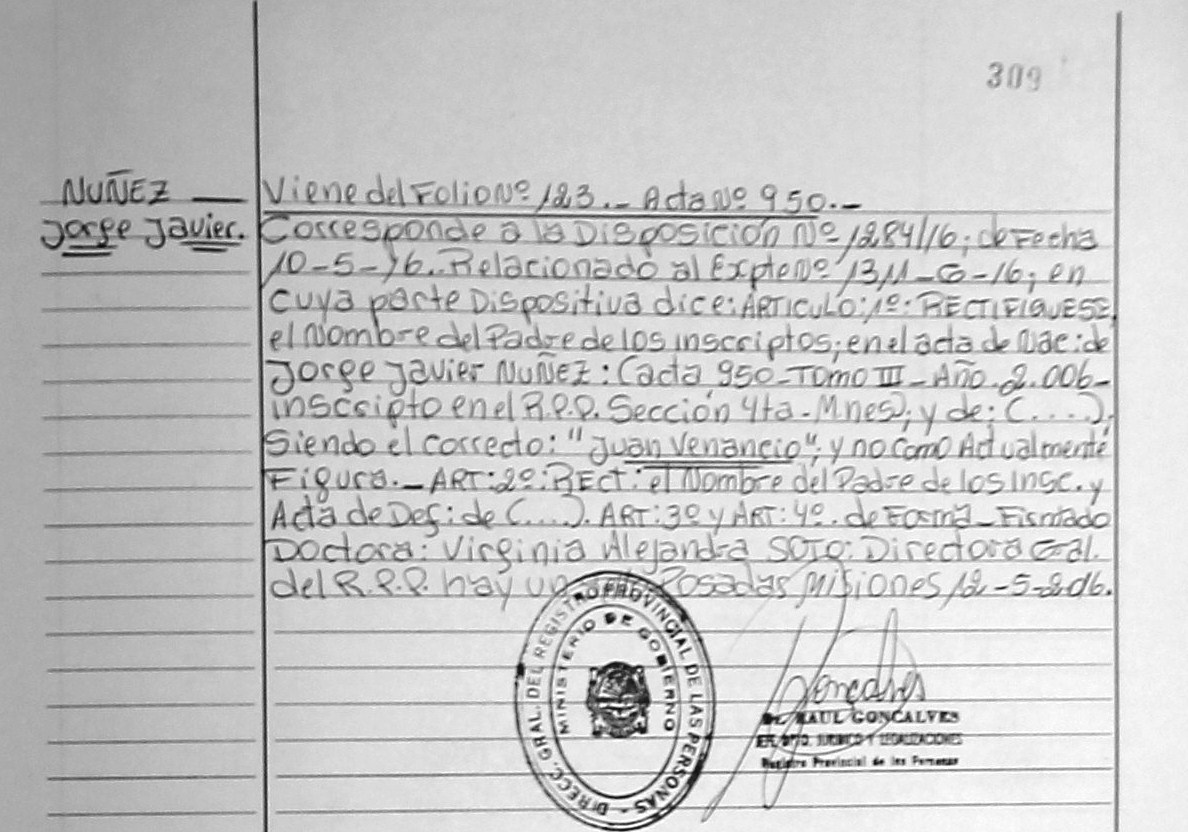 309
NUÑEZ —
Jorge Javier.
Viene del Folio Nº 123.- Acta Nº 950.-
Corresponde a la Disposición Nº 1284/16; de Fecha
10-5-16. Relacionado al Expte Nº 1311-G-16; en
cuya parte Dispositiva dice: ARTICULO: 1º: RECTIFIQUESE,
el Nombre del Padre de los inscriptos; en el acta de Nac: de
Jorge Javier NUÑEZ: (acta 950-Tomo III-Año. 2.006-
inscripto en el R.P.P. Sección 4ta-Mnes); y de: (....).
Siendo el correcto: "Juan Venancio"; y no como Actualmente
Figura.- ART: 2º: RECT: el Nombre del Padre de los Insc. y
Acta de Def: de (....). ART: 3º y ART: 4º. de Forma-Firmado
Doctora: Virginia Alejandra SOTO: Directora Gral.
del R.P.P. hay un Posadas Misiones 12-5-2016.
DIRECC. GRAL. DEL REGISTRO PROVINCIAL DE LAS PERSONAS -
MINISTERIO DE GOBIERNO
Goncalves
RAUL GONCALVES
JEFE DPTO. JURIDICO Y LEGALIZACIONES
Registro Provincial de las Personas